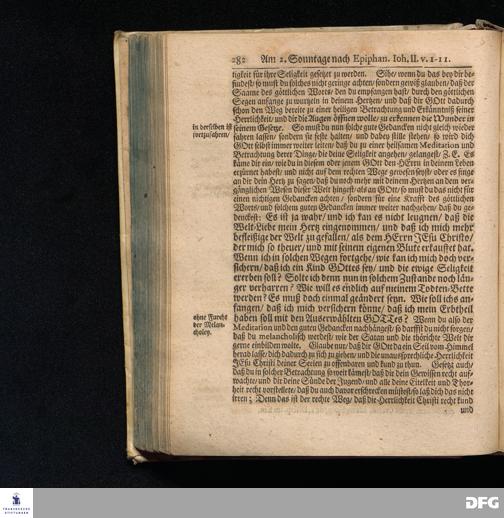 282 Am 2. Sonntage nach Epiphan. Ioh. II. v. 1-11.
tigkeit für ihre Seligkeit gesetzet zu werden. Sihe/ wenn du das bey dir be-
findest/ so must du solches nicht geringe achten/ sondern gewiß glauben/ daß der
Saame des göttlichen Worts/ den du empfangen hast/ durch den göttlichen
Segen anfange zu wurtzeln in deinem Hertzen/ und daß dir GOtt dadurch
schon den Weg bereite zu einer heiligen Betrachtung und Erkäntniß seiner
Herrlichkeit/ und dir die Augen öffnen wolle/ zu erkennen die Wunder in
in derselben ist
fortzufahren/
seinem Gesetze. So must du nun solche gute Gedancken nicht gleich wieder
fahren lassen/ sondern sie feste halten/ und dabey stille stehen/ so wird dich
GOtt selbst immer weiter leiten/ daß du zu einer heilsamen Meditation und
Betrachtung derer Dinge/ die deine Seligkeit angehen/ gelangest. Z. E. Es
käme dir ein/ wie du in diesem oder jenem GOtt den HErrn in deinem Leben
erzürnet habest/ und nicht auf dem rechten Wege gewesen seyst/ oder es finge
an dir dein Hertz zu sagen/ daß du noch mehr mit deinem Hertzen an dem ver-
gänglichen Wesen dieser Welt hingest/ als an GOtt/ so must du das nicht für
einen nichtigen Gedancken achten/ sondern für eine Krafft des göttlichen
Worts/ und solchem guten Gedancken immer weiter nachgehen/ daß du ge-
denckest: Es ist ja wahr/ und ich kan es nicht leugnen/ daß die
Welt-Liebe mein Hertz eingenommen/ und daß ich mich mehr
befleißige der Welt zu gefallen/ als dem HErrn JEsu Christo/
der mich so theuer/ und mit seinem eigenen Blute erkauffet hat.
Wenn ich in solchen Wegen fortgehe/ wie kan ich mich doch ver-
sichern/ daß ich ein Kind GOttes sey/ und die ewige Seligkeit
ererben soll? Solte ich denn nun in solchem Zustande noch län-
ger verharren? Wie will es endlich auf meinem Todten-Bette
werden? Es muß doch einmal geändert seyn. Wie soll ichs an-
fangen/ daß ich mich versichern könne/ daß ich mein Erbtheil
ohne Furcht
der Melan-
choley.
haben soll mit den Auserwählten GOTTes? Wenn du also der
Meditation und den guten Gedancken nachhängest/ so darffst du nicht sorgen/
daß du melancholisch werdest/ wie der Satan und die thörichte Welt dir
gerne einbilden wolte. Glaube nur/ daß dir GOtt da ein Seil vom Himmel
herab lasse/ dich dadurch zu sich zu ziehen/ und die unaussprechliche Herrlichkeit
JEsu Christi deiner Seelen zu offenbaren und kund zu thun. Gesetzt auch/
daß du in solcher Betrachtung so weit kämest/ daß dir dein Gewissen recht auf-
wachte/ und dir deine Sünde der Jugend/ und alle deine Eitelkeit und Thor-
heit recht vorstellete/ daß du auch davor erschrecken müstest/ so laß dich das nicht
irren; Denn das ist der rechte Weg/ daß die Herrlichkeit Christi recht kund
und
FRANCKESCHE
STIFTUNGEN
DFG